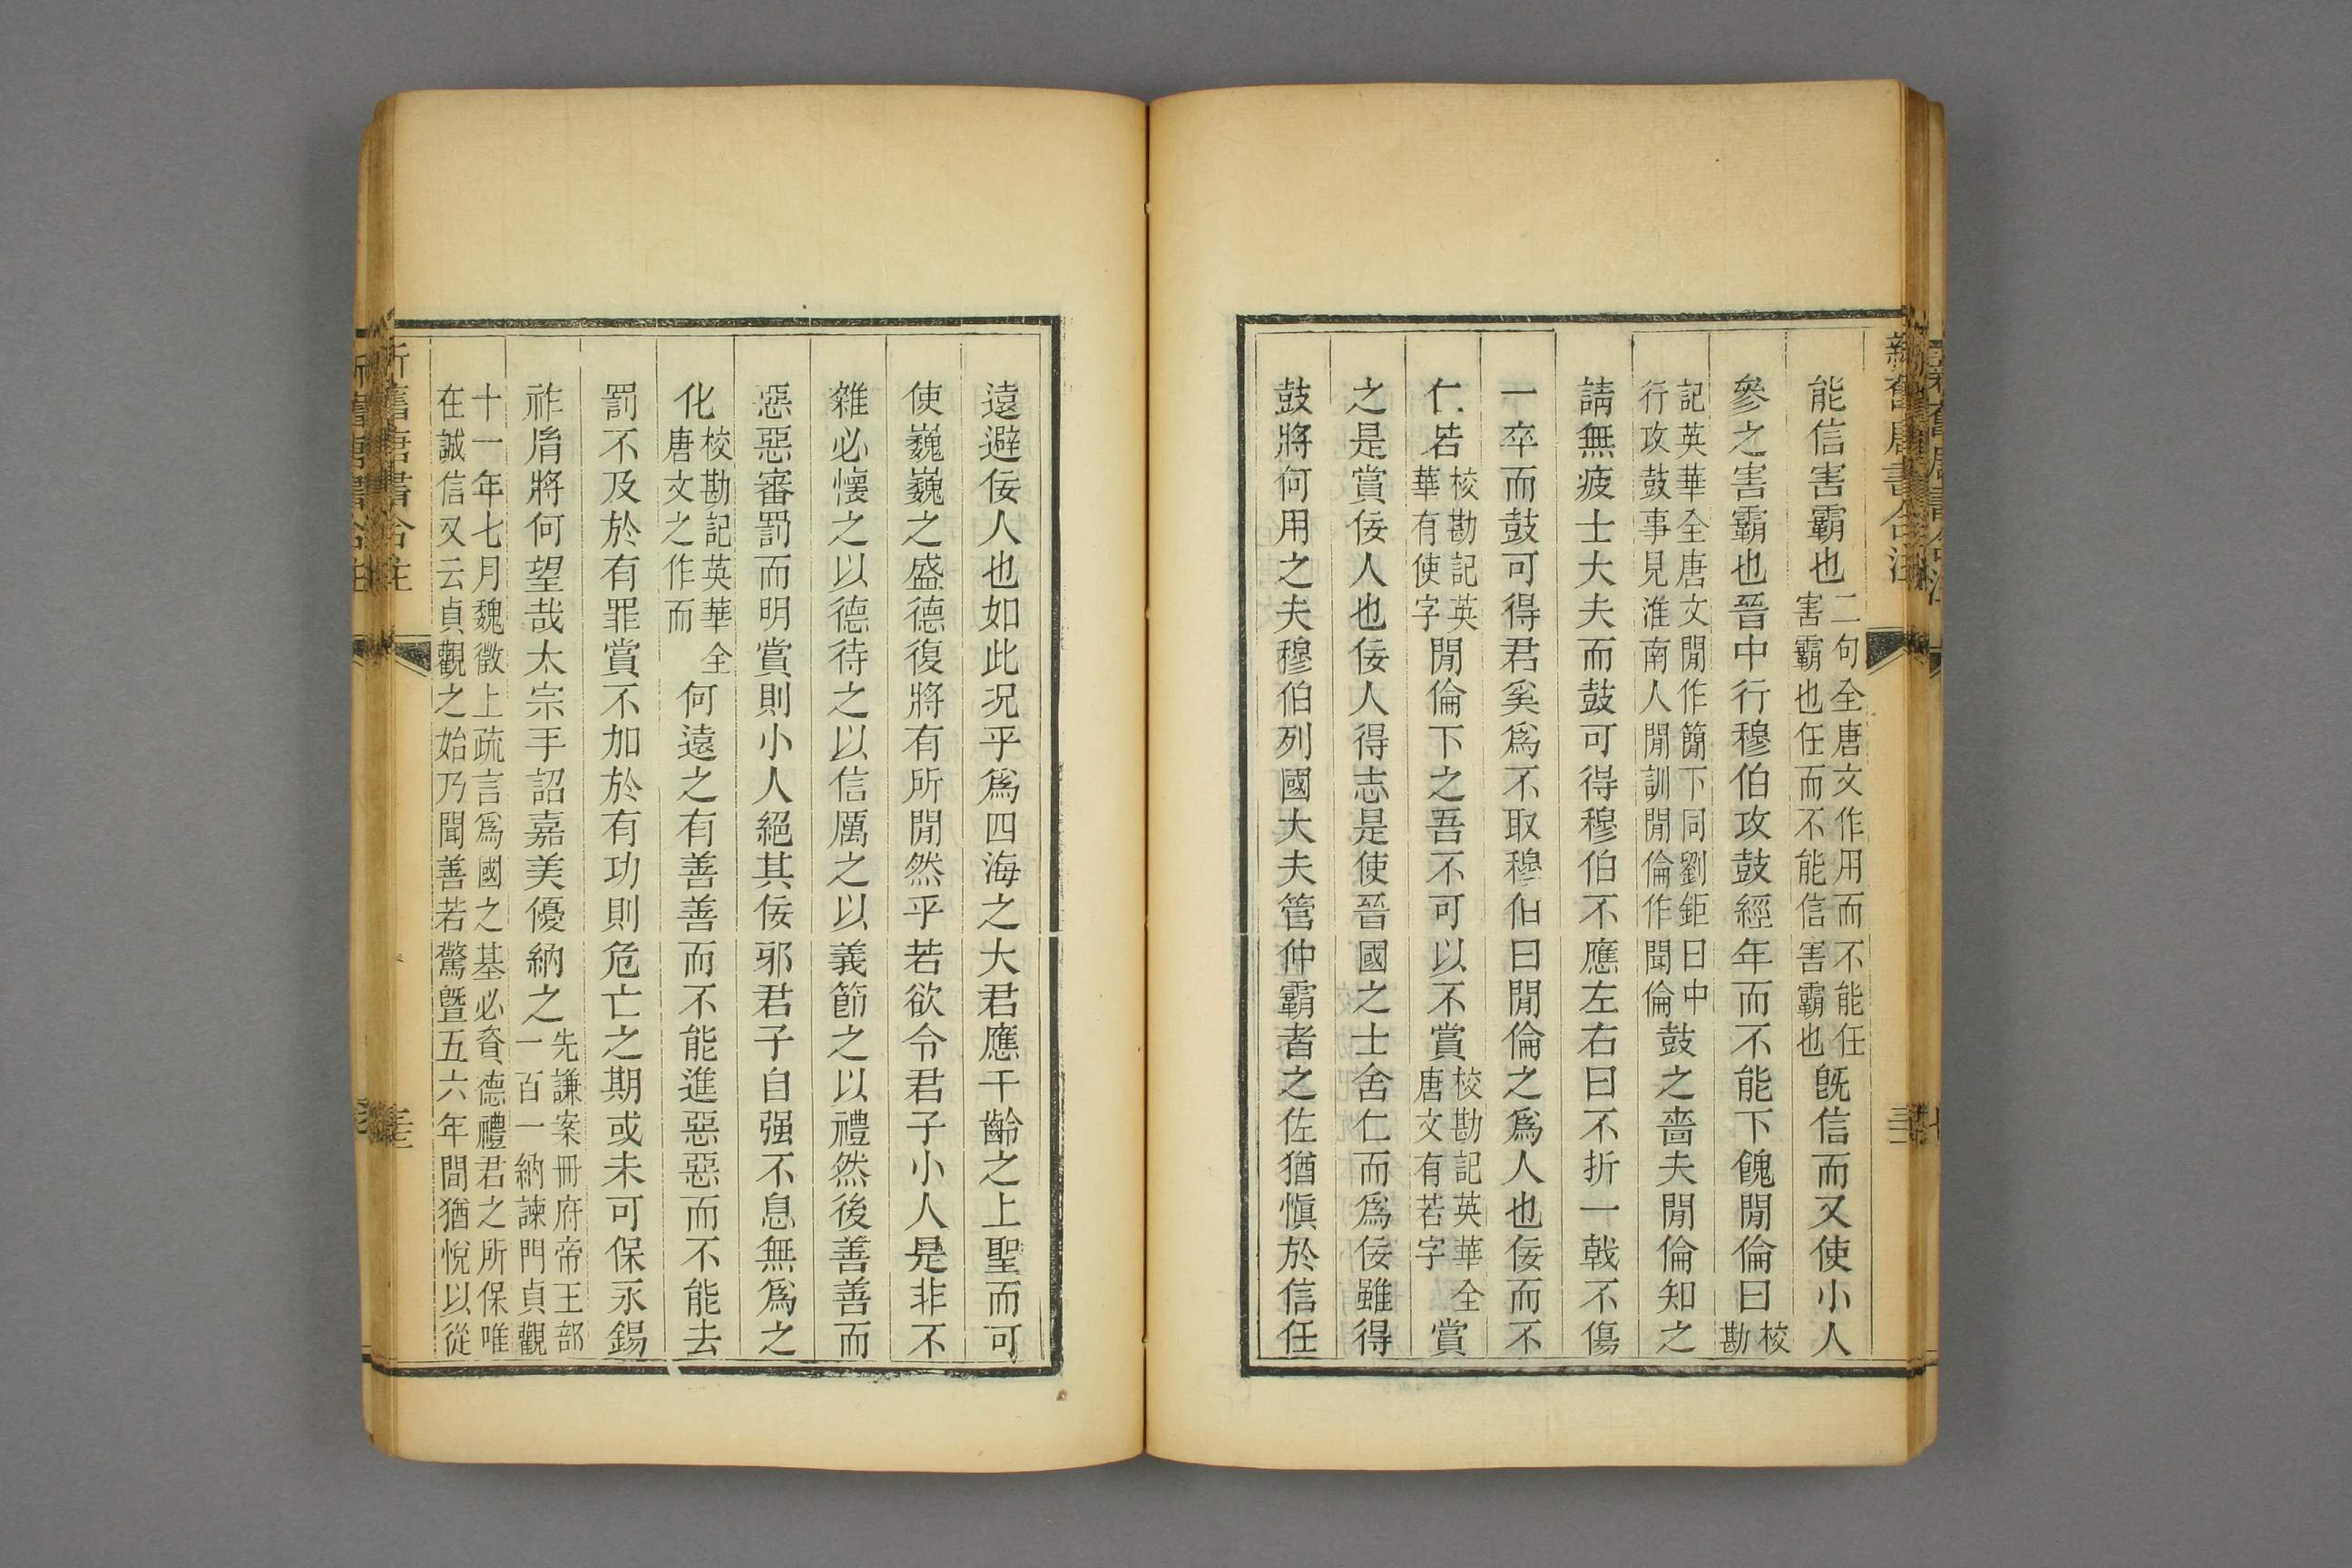 能信害霸也二句全唐文作用而不能任害霸也任而不能信害霸也既信而又使小人
參之害霸也晉中行穆伯攻鼓經年而不能下餽閒倫曰校勘
記英華全唐文閒作簡下同劉鉅曰中行攻鼓事見淮南人閒訓閒倫作聞倫鼓之嗇夫閒倫知之
請無疲士大夫而鼓可得穆伯不應左右曰不折一戟不傷
一卒而鼓可得君奚爲不取穆伯曰閒倫之爲人也佞而不
仁若校勘記英華有使字閒倫下之吾不可以不賞校勘記英華全唐文有若字賞
之是賞佞人也佞人得志是使晉國之士舍仁而爲佞雖得
鼓將何用之夫穆伯列國大夫管仲霸者之佐猶愼於信任
新舊唐書合注
遠避佞人也如此况乎爲四海之大君應千齡之上聖而可
使巍巍之盛德復將有所閒然乎若欲令君子小人是非不
雜必懷之以德待之以信厲之以義節之以禮然後善善而
惡惡審罰而明賞則小人絕其佞邪君子自强不息無爲之
化校勘記英華全唐文之作而何遠之有善善而不能進惡惡而不能去
罰不及於有罪賞不加於有功則危亡之期或未可保永錫
祚胤將何望哉太宗手詔嘉美優納之先謙案冊府帝王部一百一納諫門貞觀
十一年七月魏徵上疏言爲國之基必資德禮君之所保唯在誠信又云貞觀之始乃聞善若驚暨五六年間猶悅以從